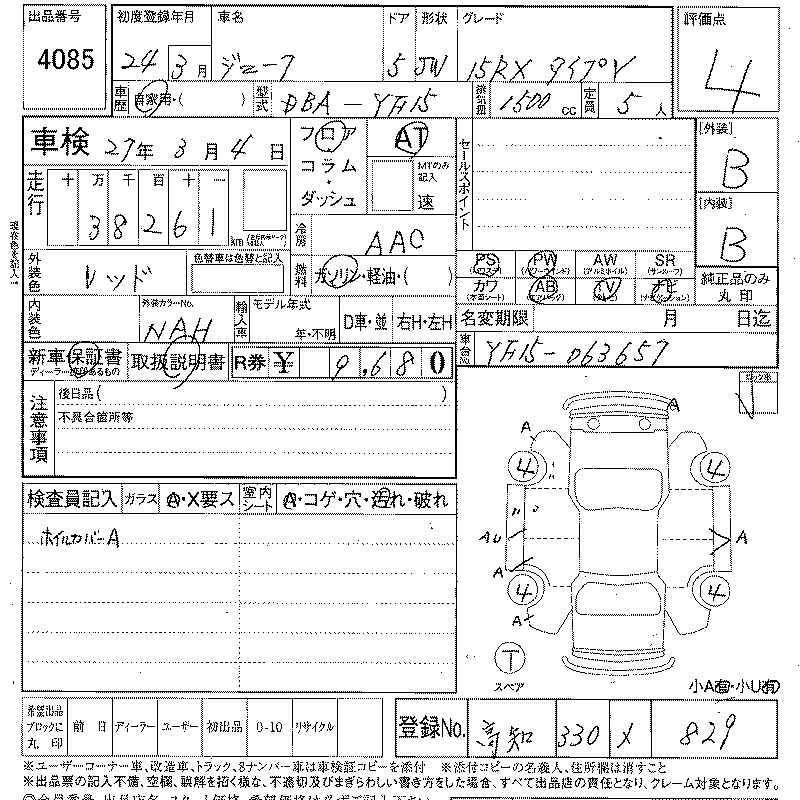 出品番号 初度登録年月 車名 ドア 形状 グレード 評価点
4085 24年 3月 ジューク 5 5W 15RX タイプV 4
車歴 自家用・( ) 型式 DBA-YF15 排気量 1500 CC 定員 5人
車検 27年 3月 4日 フロア AT セールスポイント [外装]
コラム MTのみ記入 B
走行 十 万 千 百 十 一 ・ダッシュ 速
38261 km [内装]
冷房 AAC B
外装色 レッド 色替車は色替と記入 燃料 ガソリン・軽油・( ) PS PW AW SR
(パワステ) (パワーウインド) (アルミホイル) (サンルーフ) 純正品のみ丸印
カワ AB TV ナビ
(本革シート) (エアバッグ) (テレビ) (ナビゲーション)
内装色 外装カラーNo. NAH 輸入車 モデル年式 年・不明 D車・並 右H・左H 名変期限 月 日迄
新車保証書 取扱説明書 R券 ¥ 9,680 車台No. YF15-063657
ディーラー捺印あるもの
注意事項 後日品( )
不具合箇所等
検査員記入 ガラス A・X要ス 室内シート A・コゲ・穴・汚れ・破れ
ホイルカバーA
A A
4 4
AU A
A
4 4
A
T
スペア
小A有・小U有
希望出品ブロックに丸印 前日 ディーラー ユーザー 初出品 0-10 リサイクル 登録No. 高知 330 X 829
※ユーザーコーナー車、改造車、トラック、8ナンバー車は車検証コピーを添付 ※添付コピーの名義人、住所欄は消すこと
※出品票の記入不備、空欄、誤解を招く様な、不適切及びまぎらわしい書き方をした場合、すべて出品店の責任となり、クレーム対象となります。